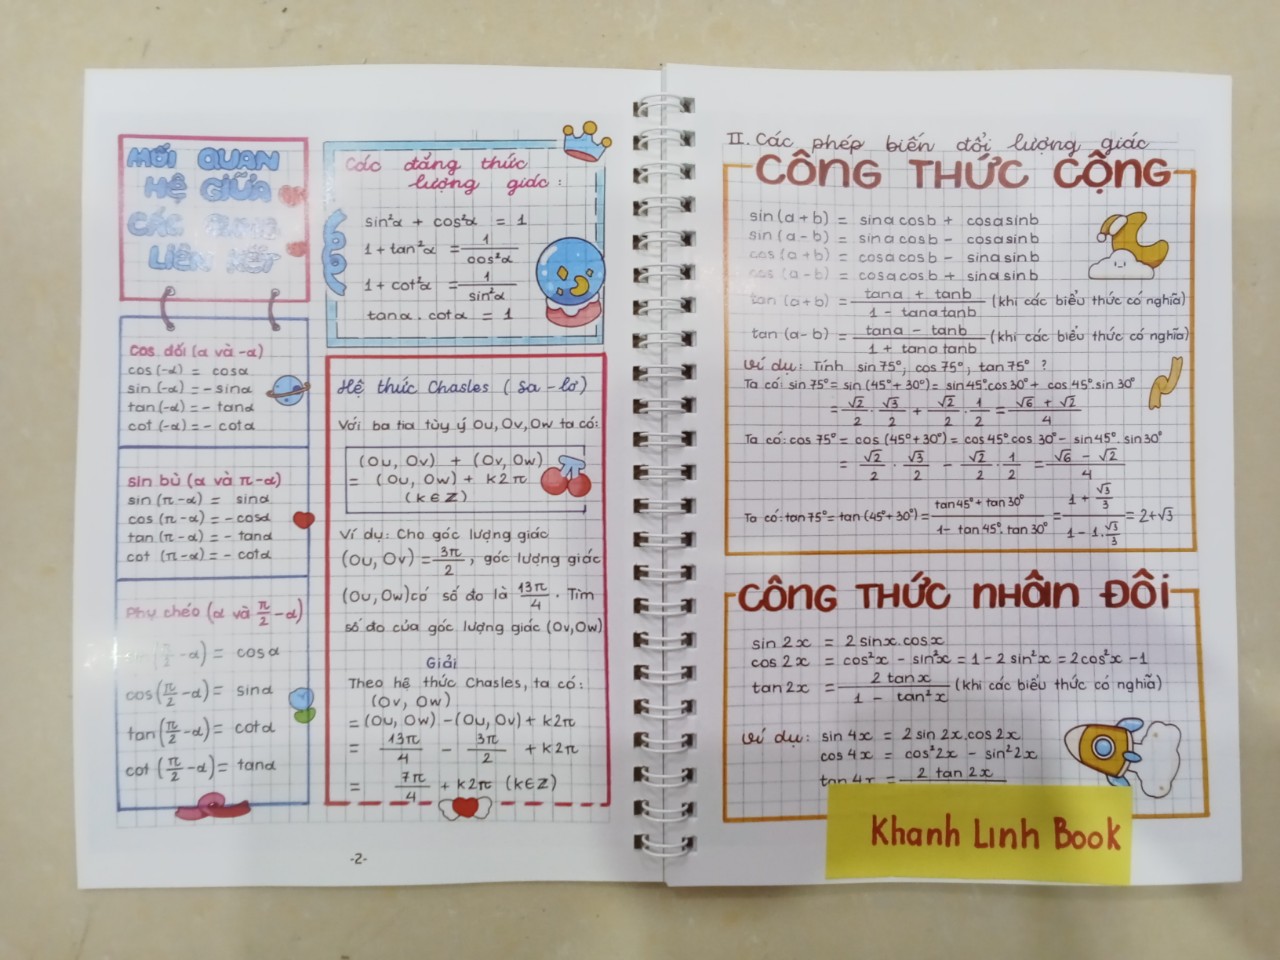 MỐI QUAN
HỆ GIỮA
CÁC CUNG
LIÊN KẾT
Cos đối (α và -α)
cos (-α) = cosα
sin (-α) = - sinα
tan (-α) = - tanα
cot (-α) = - cotα
sin bù (α và π-α)
sin (π-α) = sinα
cos (π-α) = - cosα
tan (π-α) = - tanα
cot (π-α) = - cotα
Phụ chéo (α và π/2 -α)
(π/2 -α) = cosα
cos(π/2 -α) = sinα
tan(π/2 -α) = cotα
cot (π/2 -α) = tanα
Các đẳng thức
lượng giác :
sin²α + cos²α = 1
1 + tan²α = 1/cos²α
1 + cot²α = 1/sin²α
tanα . cotα = 1
Hệ thức Chasles ( Sa - lơ )
Với ba tia tùy ý Ou, Ov, Ow ta có:
(Ou, Ov) + (Ov, Ow)
= (Ou, Ow) + k2π
(k∈Z)
Ví dụ: Cho góc lượng giác
(Ou, Ov) = 3π/2 , góc lượng giác
(Ou, Ow) có số đo là 13π/4 . Tìm
số đo của góc lượng giác (Ov, Ow)
Giải
Theo hệ thức Chasles, ta có:
(Ov, Ow)
= (Ou, Ow) - (Ou, Ov) + k2π
= 13π/4 - 3π/2 + k2π
= 7π/4 + k2π (k∈Z)
-2-
II. Các phép biến đổi lượng giác
CÔNG THỨC CỘNG
sin (a + b) = sina cosb + cosa sinb
sin (a - b) = sina cosb - cosa sinb
cos (a + b) = cosa cosb - sina sinb
cos (a - b) = cosa cosb + sina sinb
tan (a+b) = tana + tanb/1 - tana tanb (khi các biểu thức có nghĩa)
tan (a-b) = tana - tanb/1 + tana tanb (khi các biểu thức có nghĩa)
Ví dụ: Tính sin 75°, cos 75°, tan 75° ?
Ta có: sin 75° = sin (45°+30°) = sin 45° cos 30° + cos 45°. sin 30°
= √2/2 . √3/2 + √2/2 . 1/2 = √6 + √2/4
Ta có: cos 75° = cos (45°+30°) = cos 45°. cos 30° - sin 45°. sin 30°
= √2/2 . √3/2 - √2/2 . 1/2 = √6 - √2/4
Ta có: tan 75° = tan (45°+30°) = tan 45° + tan 30°/1- tan 45°. tan 30° = 1 + √3/3/1 - 1.√3/3 = 2+√3
CÔNG THỨC NHÂN ĐÔI
sin 2x = 2 sinx. cosx
cos 2x = cos²x - sin²x = 1 - 2 sin²x = 2cos²x - 1
tan 2x = 2 tanx/1 - tan²x (khi các biểu thức có nghĩa)
Ví dụ: sin 4x = 2 sin 2x. cos 2x
cos 4x = cos²2x - sin²2x
tan 4x = 2 tan 2x
Khanh Linh Book